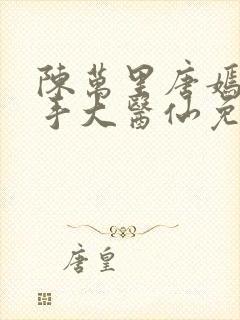 陳萬里唐嫣
手大醫仙免
唐皇